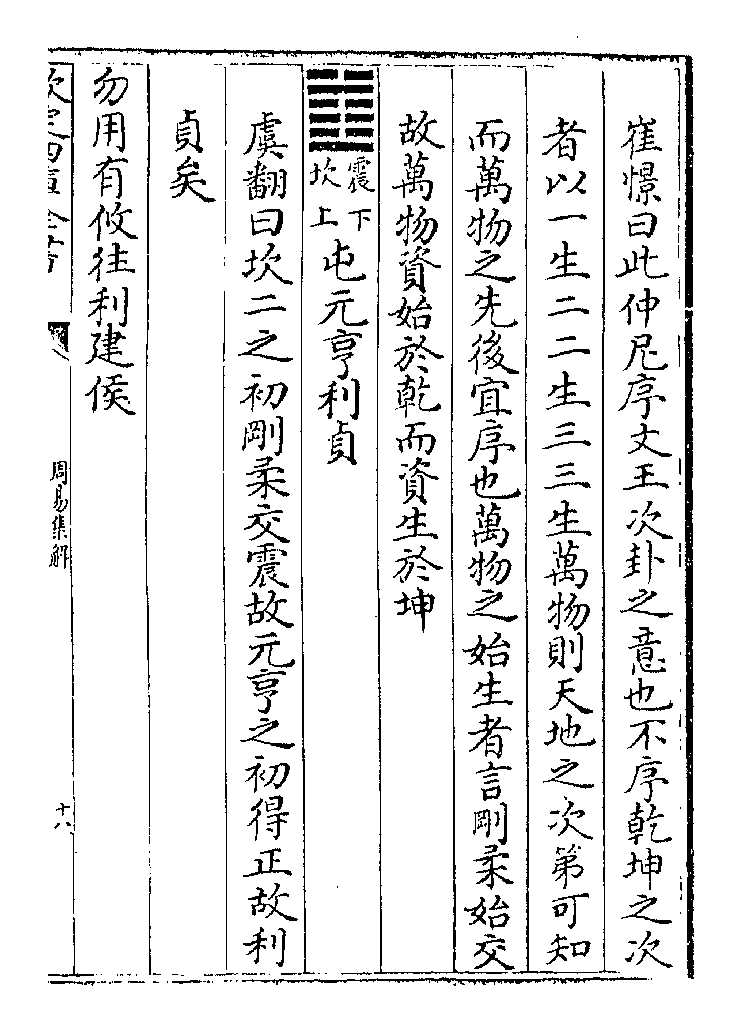 崔憬曰此仲尼序文王次卦之意也不序乾坤之次
者以一生二二生三三生萬物則天地之次第可知
而萬物之先後宜序也萬物之始生者言剛柔始交
故萬物資始於乾而資生於坤
震下坎上屯元亨利貞
虞翻曰坎二之初剛柔交震故元亨之初得正故利
貞矣
勿用有攸往利建侯
欽定四庫全書
周易集解
十八